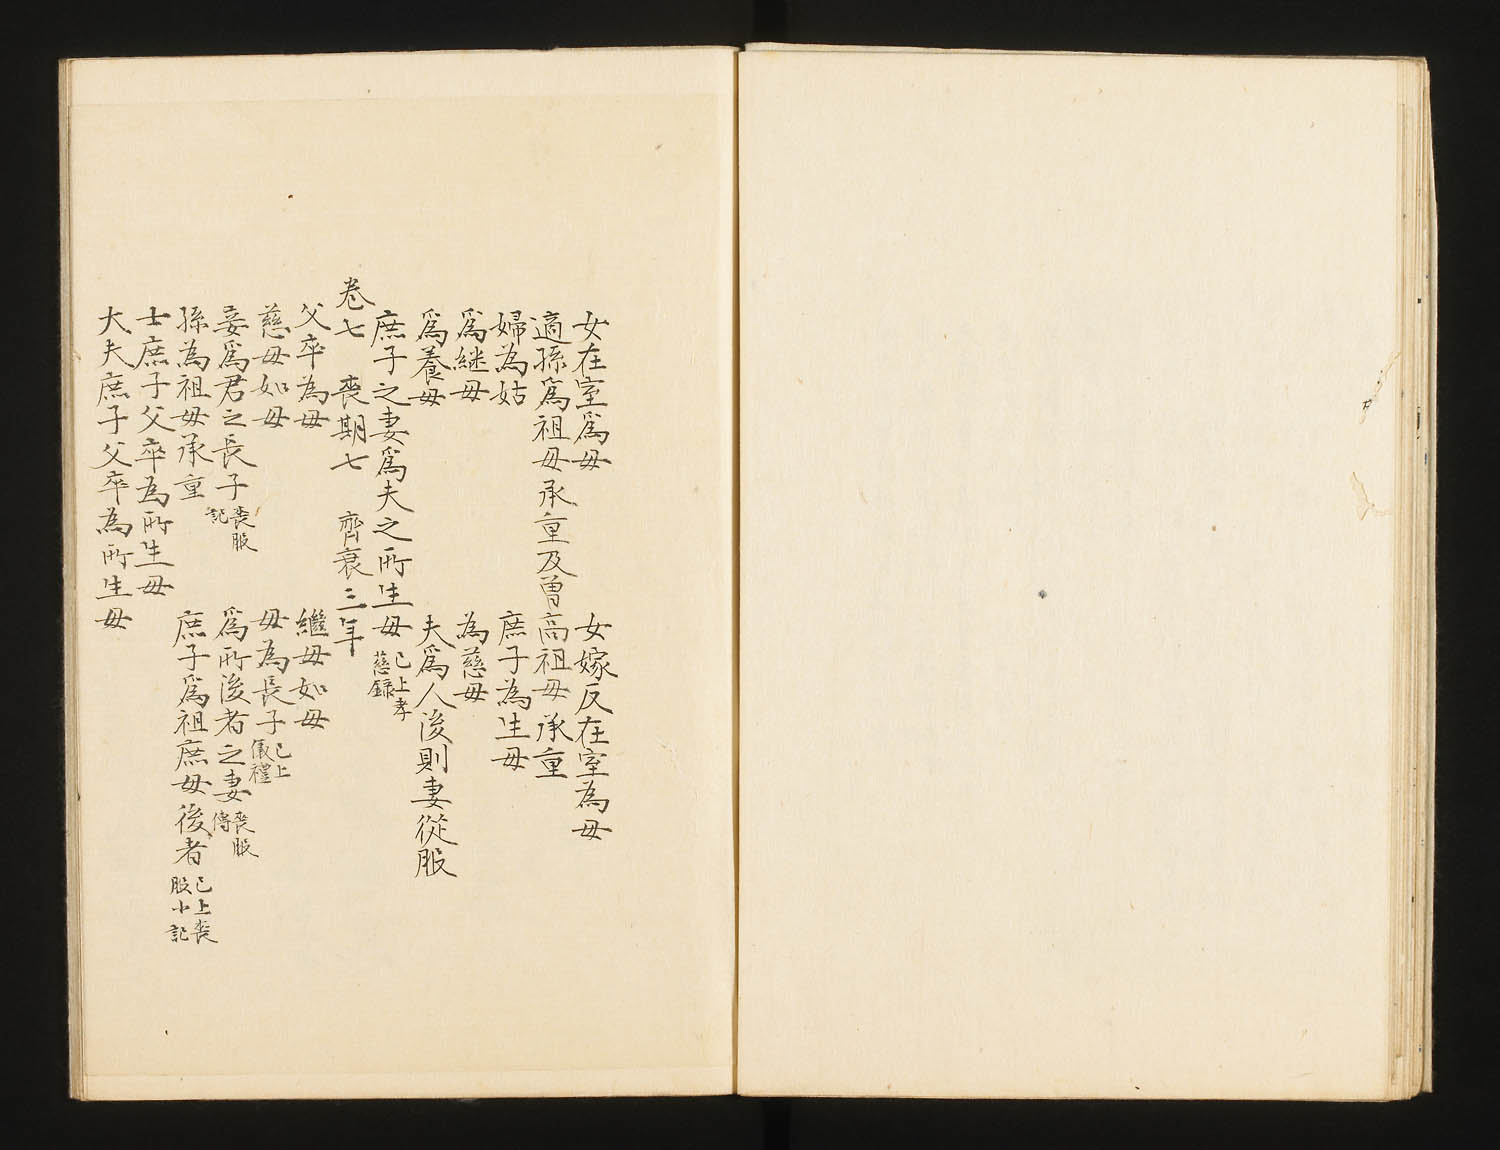 女在室爲母　女嫁反在室為母
適孫爲祖母承重及曾高祖母承重
婦為姑　庶子為生母
爲継母　為慈母
爲養母　夫爲人後則妻從服
庶子之妻爲夫之所生母 已上孝慈録
卷七　喪期七　齊衰三年
父卒為母　繼母如母
慈母如母　母為長子 已上儀禮
妾爲君之長子 喪服記　爲所後者之妻 喪服傳
孫為祖母承重　庶子爲祖庶母後者 已上喪服小記
士庶子父卒為所生母
大夫庶子父卒為所生母